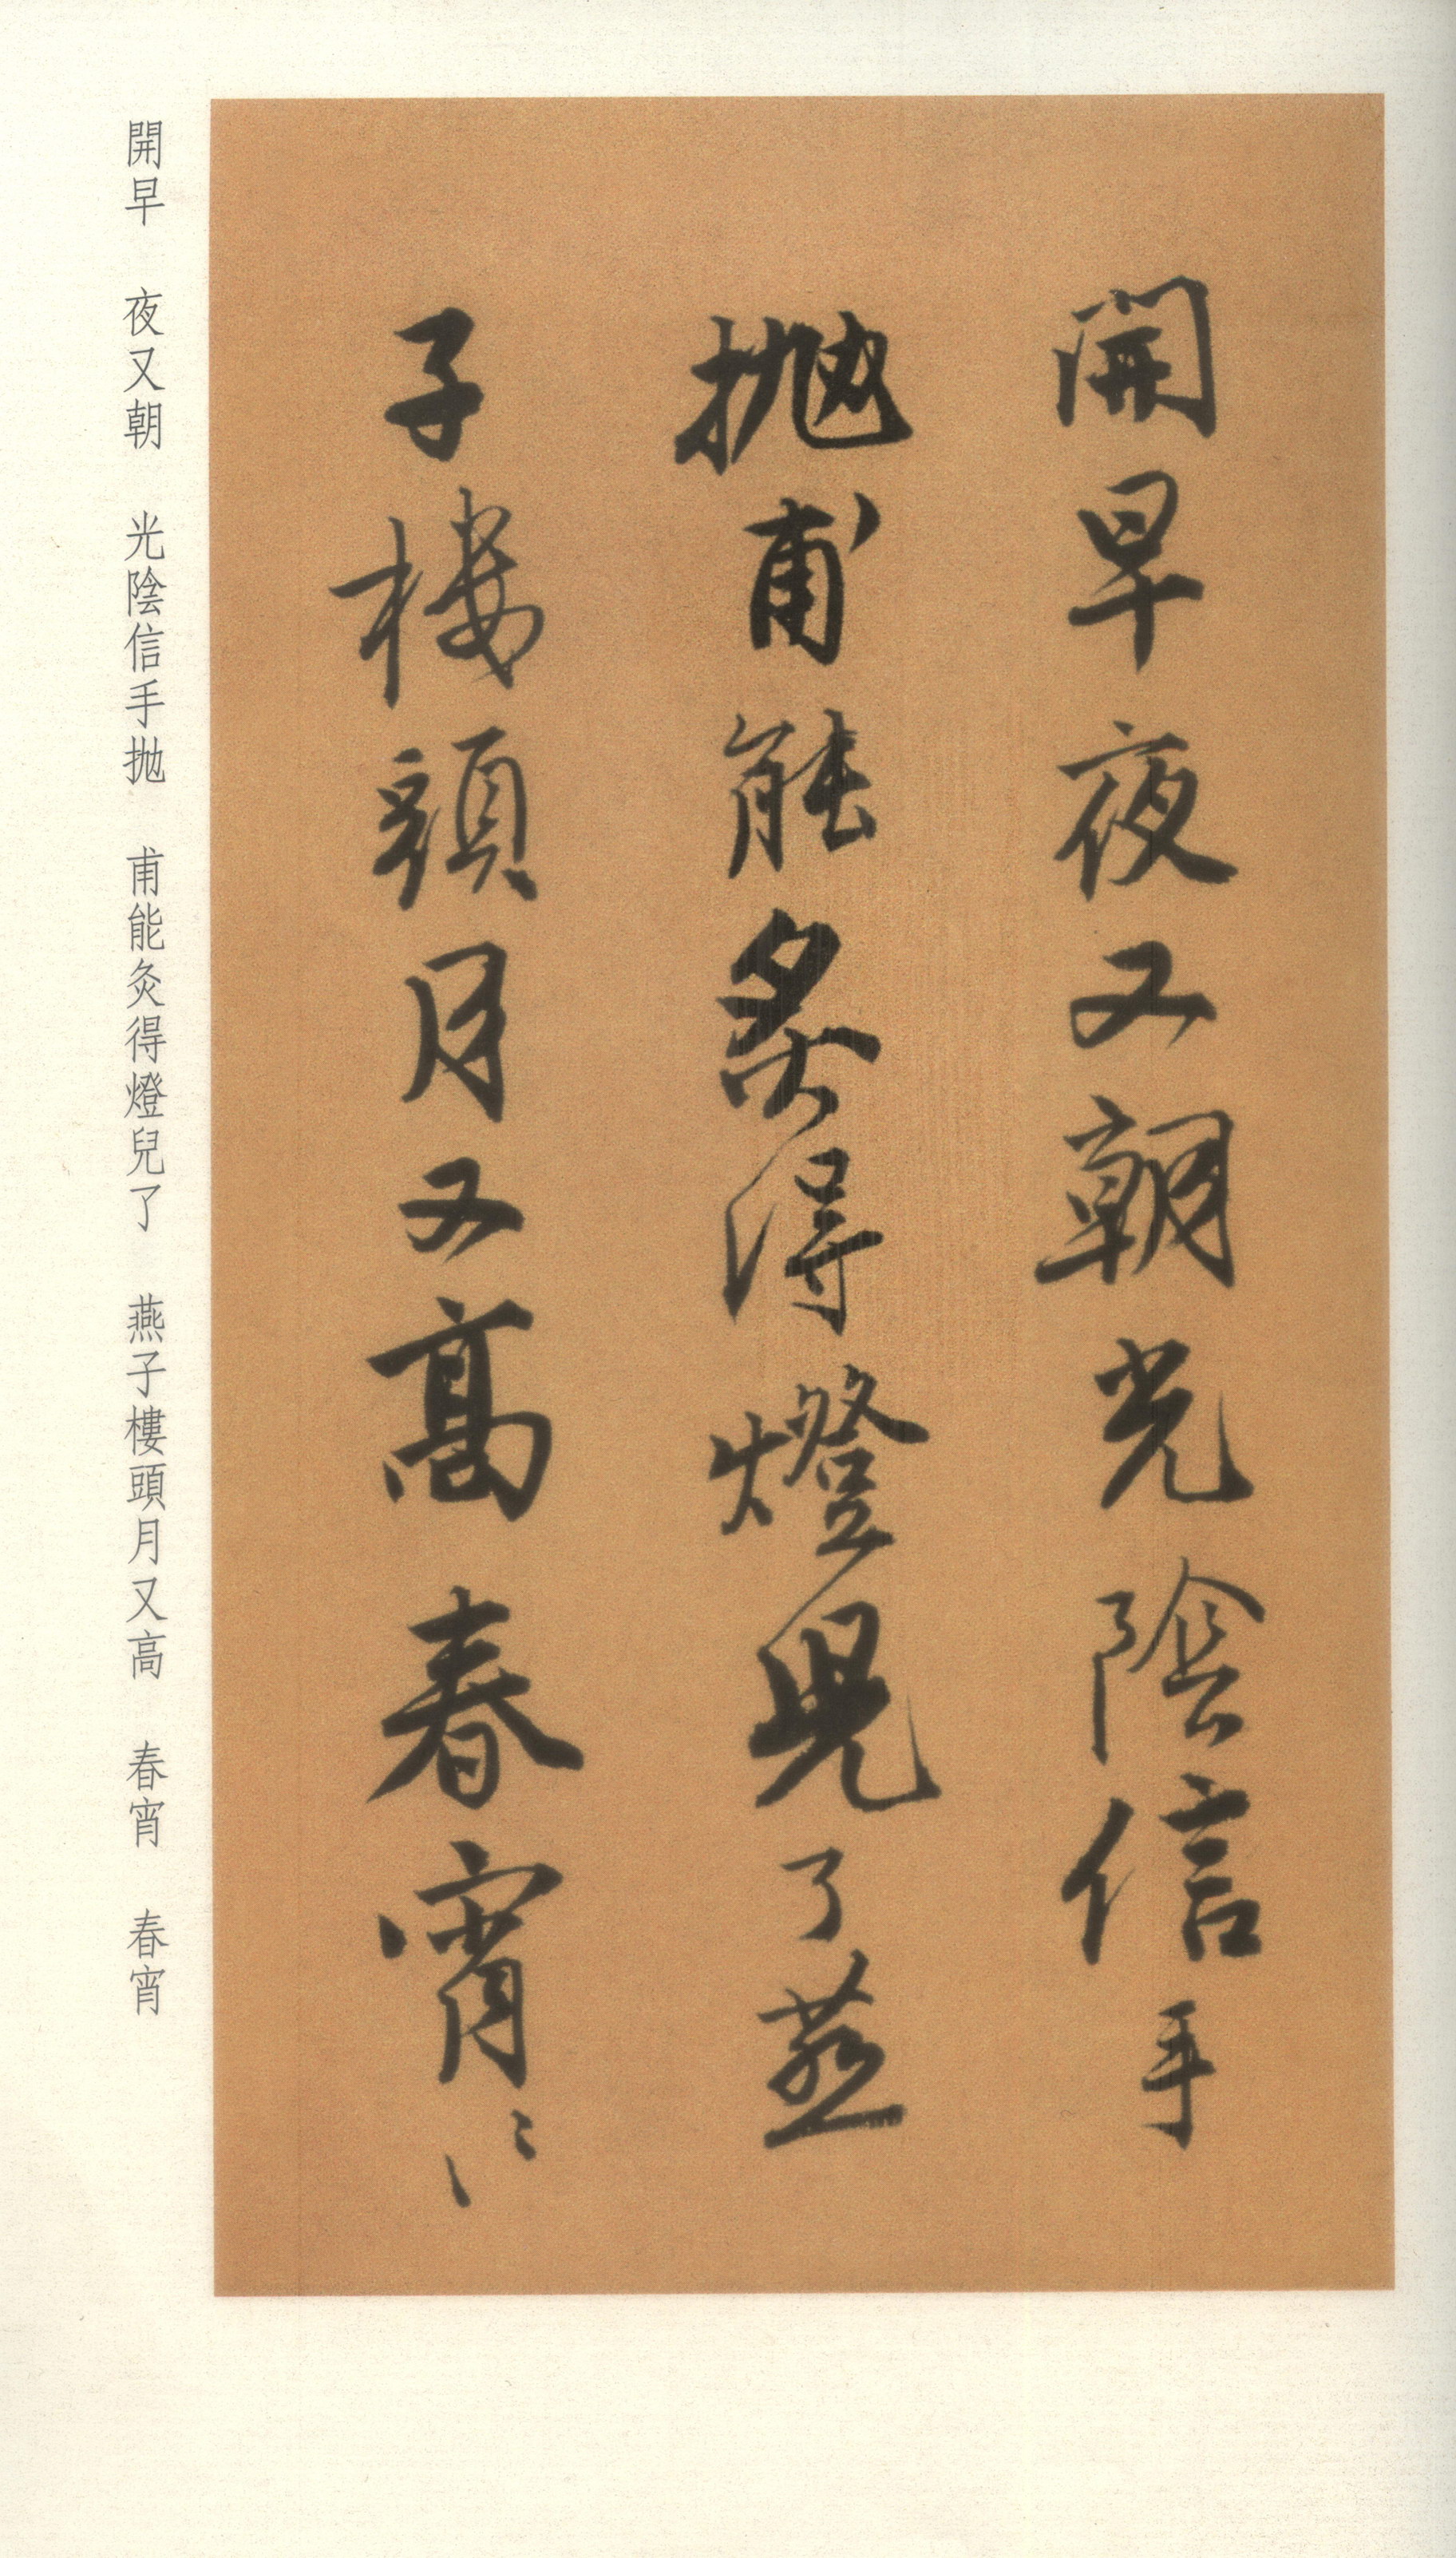 開早夜又朝光陰信手
拋甫能炙得燈兒了燕
子樓頭月又高春宵〻
開早　夜又朝　光陰信手拋　甫能灸得燈兒了　燕子樓頭月又高　春宵　春宵